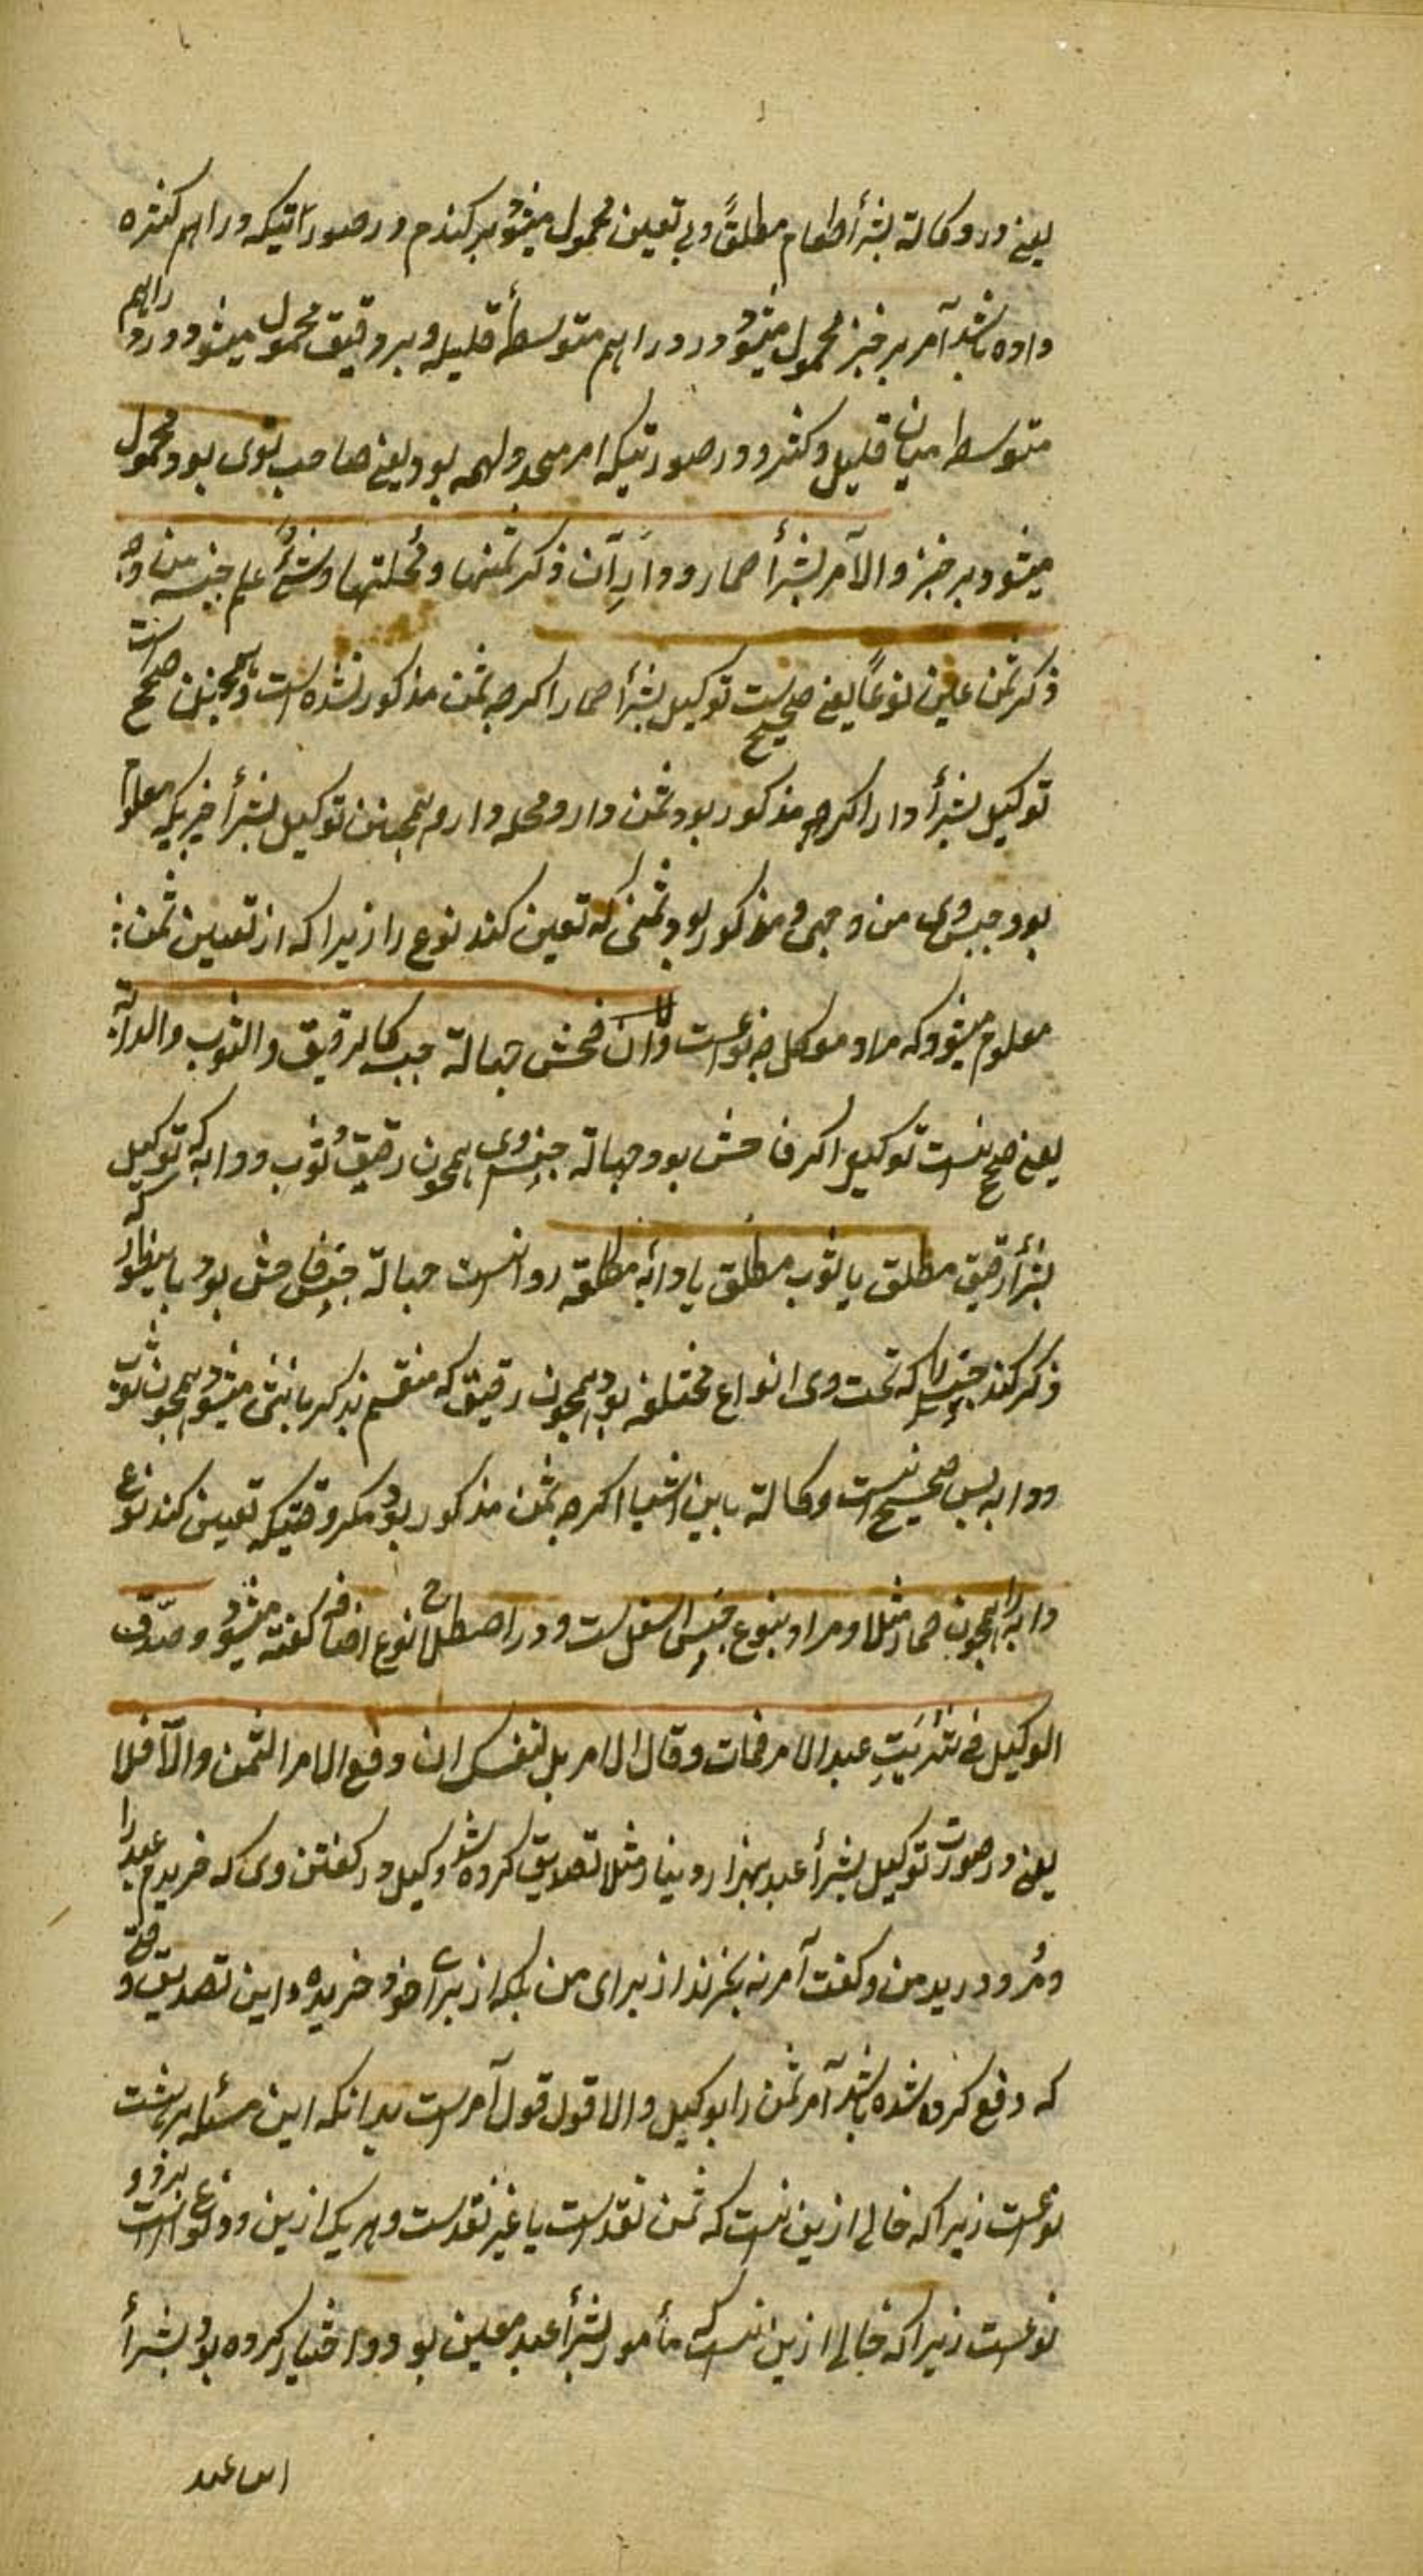 یعنی در وکالة بشرأ طعام مطلقً وبی تعین محمول میشود بر کندم در صورتیکه دراهم کثیره
داده باشد آمر بر خبز محمول میشود در دراهم متوسطأ قلیله و بر دقیق محمول میشود در دراهم
متوسط میان قلیل وکثیر و در صورتیکه امر متخذ ولیمه بود یعنی صاحب توی بود محمول
میشود بر خبز والا آمر بشرأ حمار ودارٍ آن ذکر ثمنها ومحلتها وشئٍ علم جنسه من وجه
ذکر ثمن عین نوعاً یعنی صحیح ست توکیل بشرأ حمار اکرچه ثمن مذکور نشده است و همچنین صحیح است
توکیل بشرأ دار اکرچه مذکور بود ثمن دار ومحله دار وهمچنین توکیل بشرأ چیزیکه معلوم
بود جنس وی من وجهی و مذکور بود ثمنی که تعین کند نوع را زیرا که از تعیین ثمن
معلوم میشود که مراد موکل چه نوعست لا ان فحش جهالة جنسه کالرقیق والثوب والدابة
یعنی صحیح نیست توکیل اکر فاحش بود جهالة جنس وی همچون رقیق وثوب ودابه که توکیل
بشرأ رقیق مطلق یا ثوب مطلق یا دابّه مطلقه روا نیست جهالة جنس فاحش بود باینطور که
ذکر کند جنس را که تحت وی انواع مختلفه بود همچون رقیق که منقسم بذکر یا انثی میشود همچون ثوب
ودابه پس صحیح نیست وکالة باین اشیا اکرچه ثمن مذکور بود مکر وقتیکه تعیین کند نوع
دابه را همچون حمار مثلا ومراد بنوع جنس اسفل ست ودر اصطلاح نوع اضافی کفته میشود وصدّق
الوکیل فی شریتِ عبد الامر فمات وقال الامر بل لنفسک ان دفع الامر الثمن والاّ فلا
یعنی در صورت توکیل بشرأ عبد بهزار دینار مثلا تصدیق کرده شود وکیل در کفتن وی که خریدم عبد را
ومُرد در ید من وکفت آمر نه بخریدٔ از برای من بلکه از برأی خود خریدهٔ واین تصدیق وقتی
که دفع کرده شده باشد آمر ثمن را بوکیل والا قول قول آمرست بدانکه این مسئله بر هشت
نوعست زیرا که خالی ازین نیست که ثمن نقدست یا غیر نقدست وهر یک ازین دو نوع بر دو
نوعست زیرا که خالی ازین نیست که مأمور بشرأ عبد معین بود ودر اختیار کرده بود بشرأ